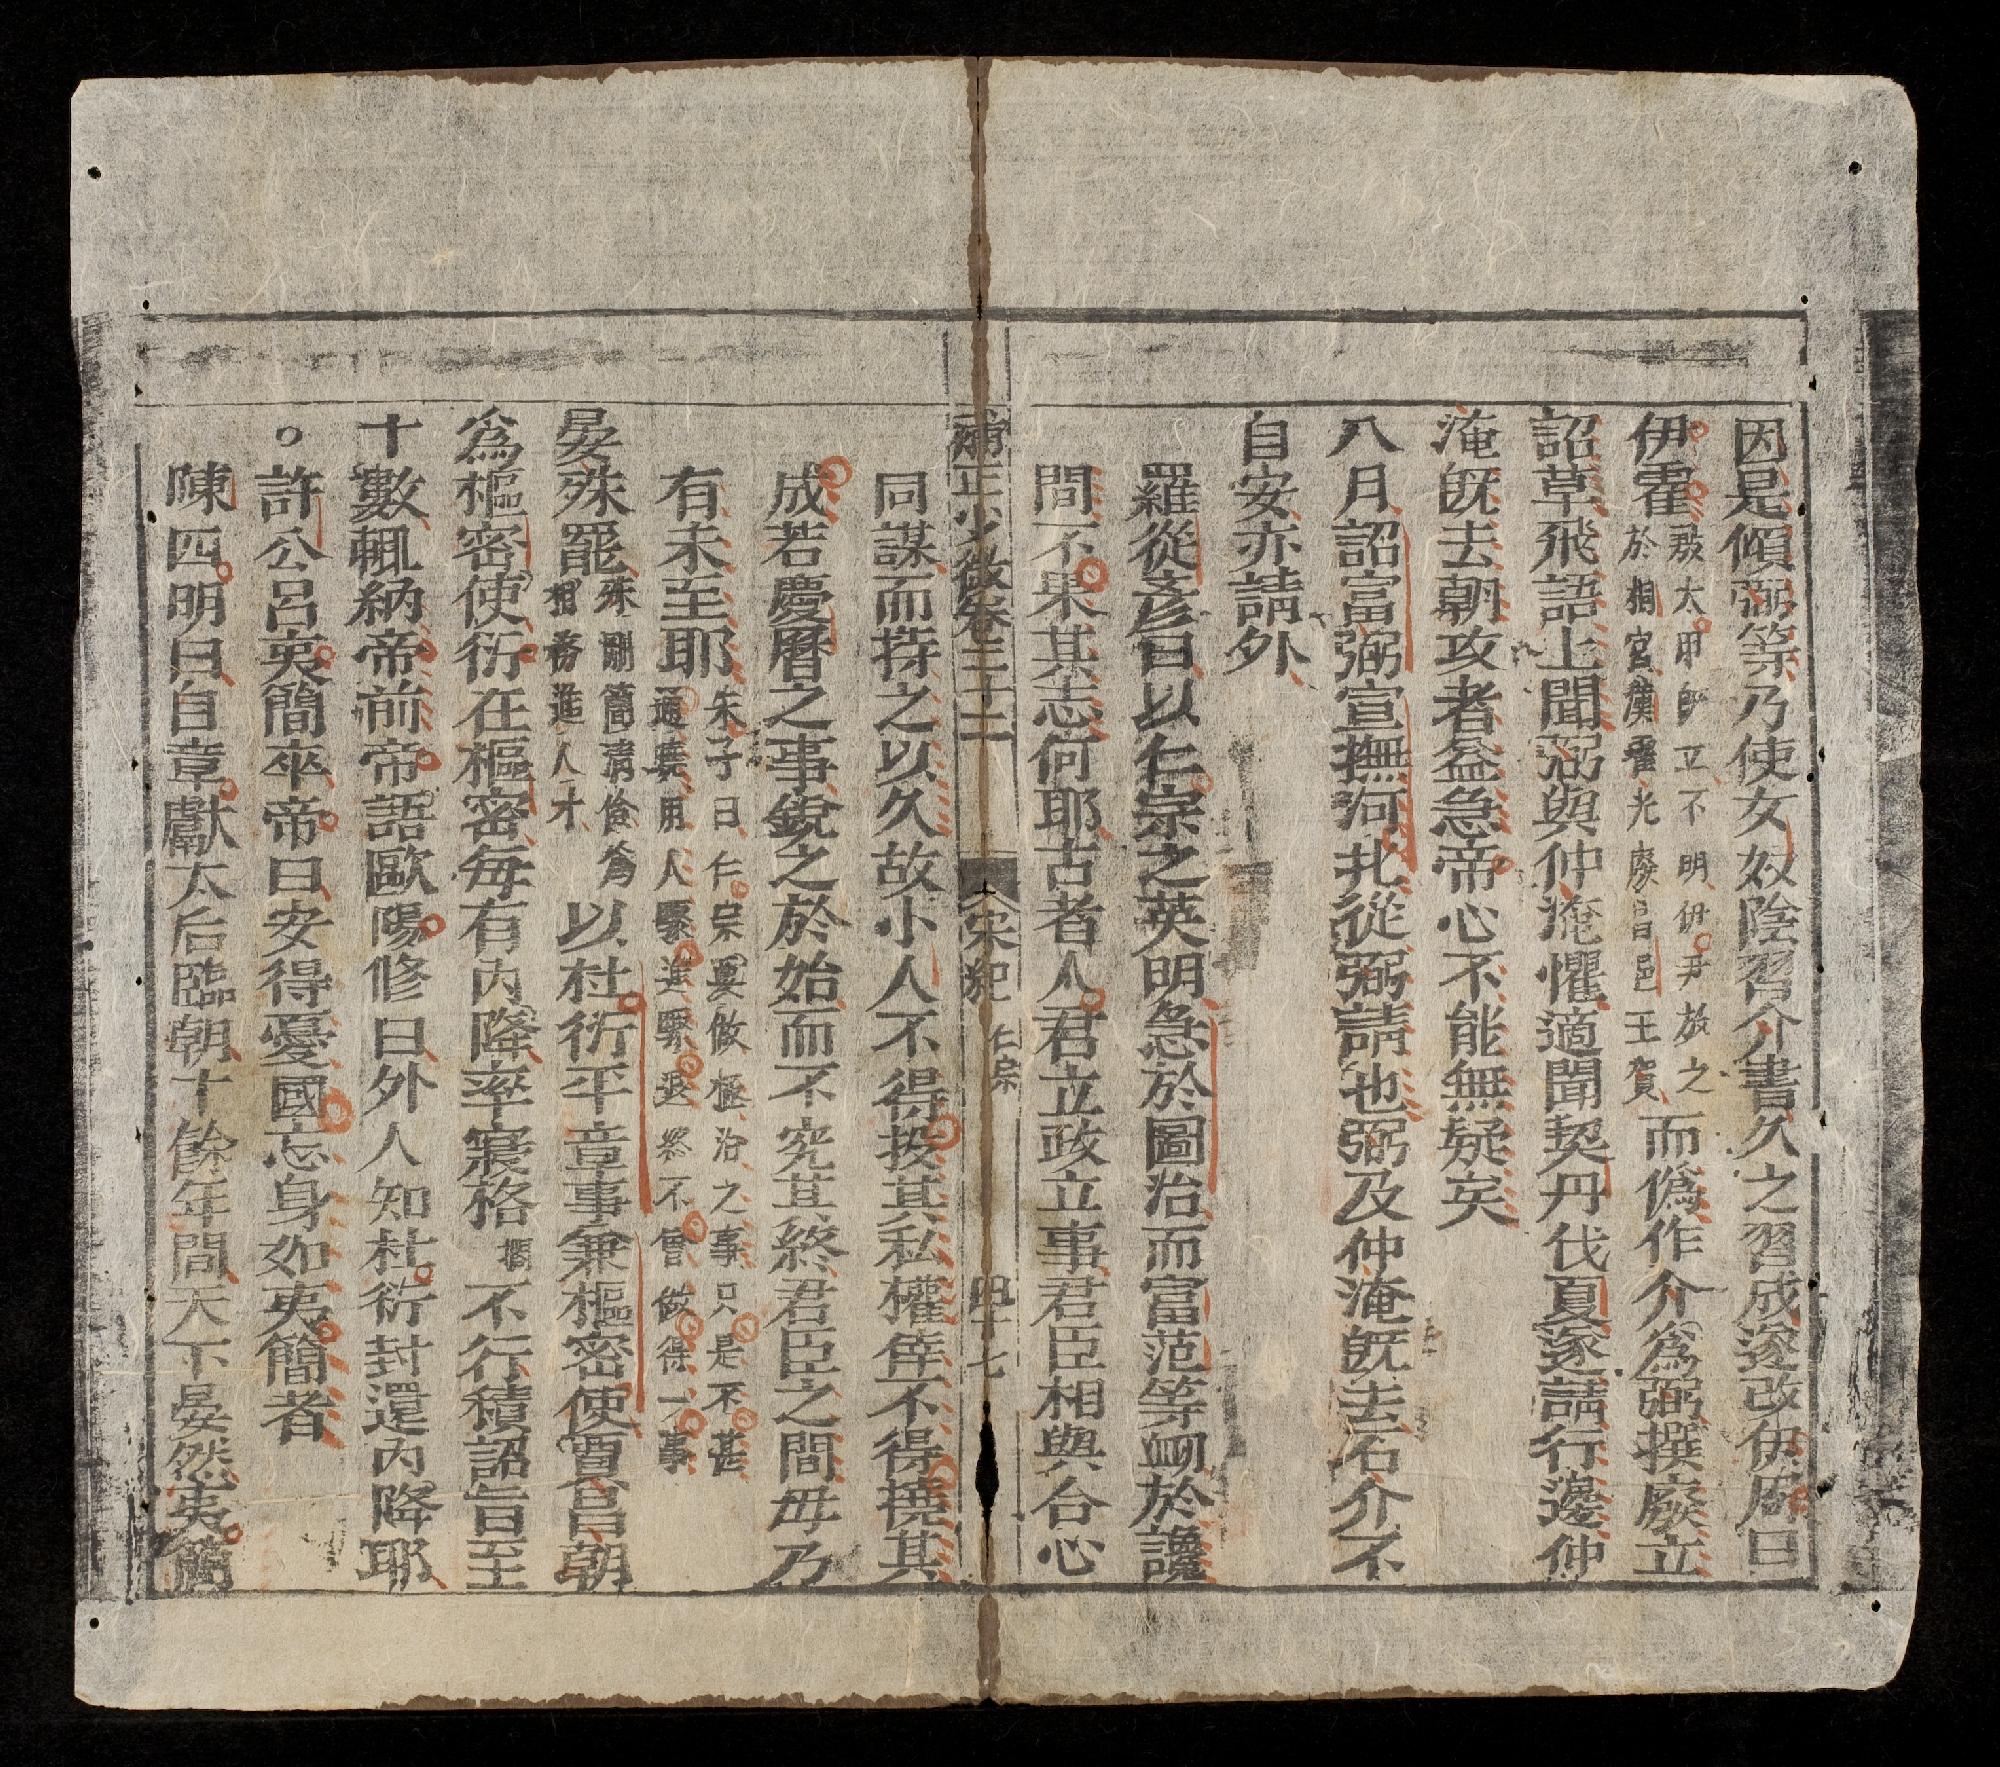 因是傾弼等乃使女奴陰習介書久之習成遂改伊周曰
伊霍殷太甲既立不明伊尹放之於桐宮漢霍光廢昌邑王賀而僞作介爲弼撰廢立
詔草飛語上聞弼與仲淹懼適聞契丹伐夏遂請行邊仲
淹既去朝攻者益急帝心不能無疑矣
八月詔富弼宣撫河北從弼請也弼及仲淹既去石介不
自安亦請外
羅從彥曰以仁宗之英明急於圖治而富范等衂於讒
間不果其志何耶古者人君立政立事君臣相與合心
補正少微卷三十二 宋紀 仁宗 四十七
同謀而持之以久故小人不得投其私權倖不得撓其
成若慶曆之事銳之於始而不究其終君臣之間毋乃
有未至耶朱子曰仁宗要做極治之事只是不甚通曉用人驟進驟退終不會做得一事
晏殊罷殊剛簡清儉爲相務進人才以杜衍平章事兼樞密使賈昌朝
爲樞密使衍在樞密每有內降率寢格擱不行積詔旨至
十數輒納帝前帝語歐陽修曰外人知杜衍封還內降耶
○許公呂夷簡卒帝曰安得憂國忘身如夷簡者
陳四明曰自章獻太后臨朝十餘年間天下晏然夷簡